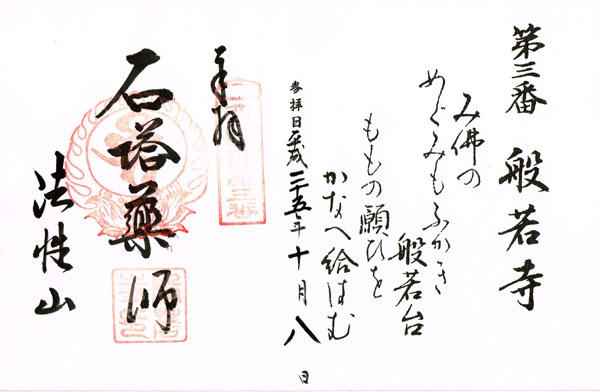 第三番 般若寺
み佛の
めぐみもふかき
般若台
ももの願ひを
かなへ給はむ
参拝日 平成二十五年十月八日
奉拝
石塔薬師
法性山